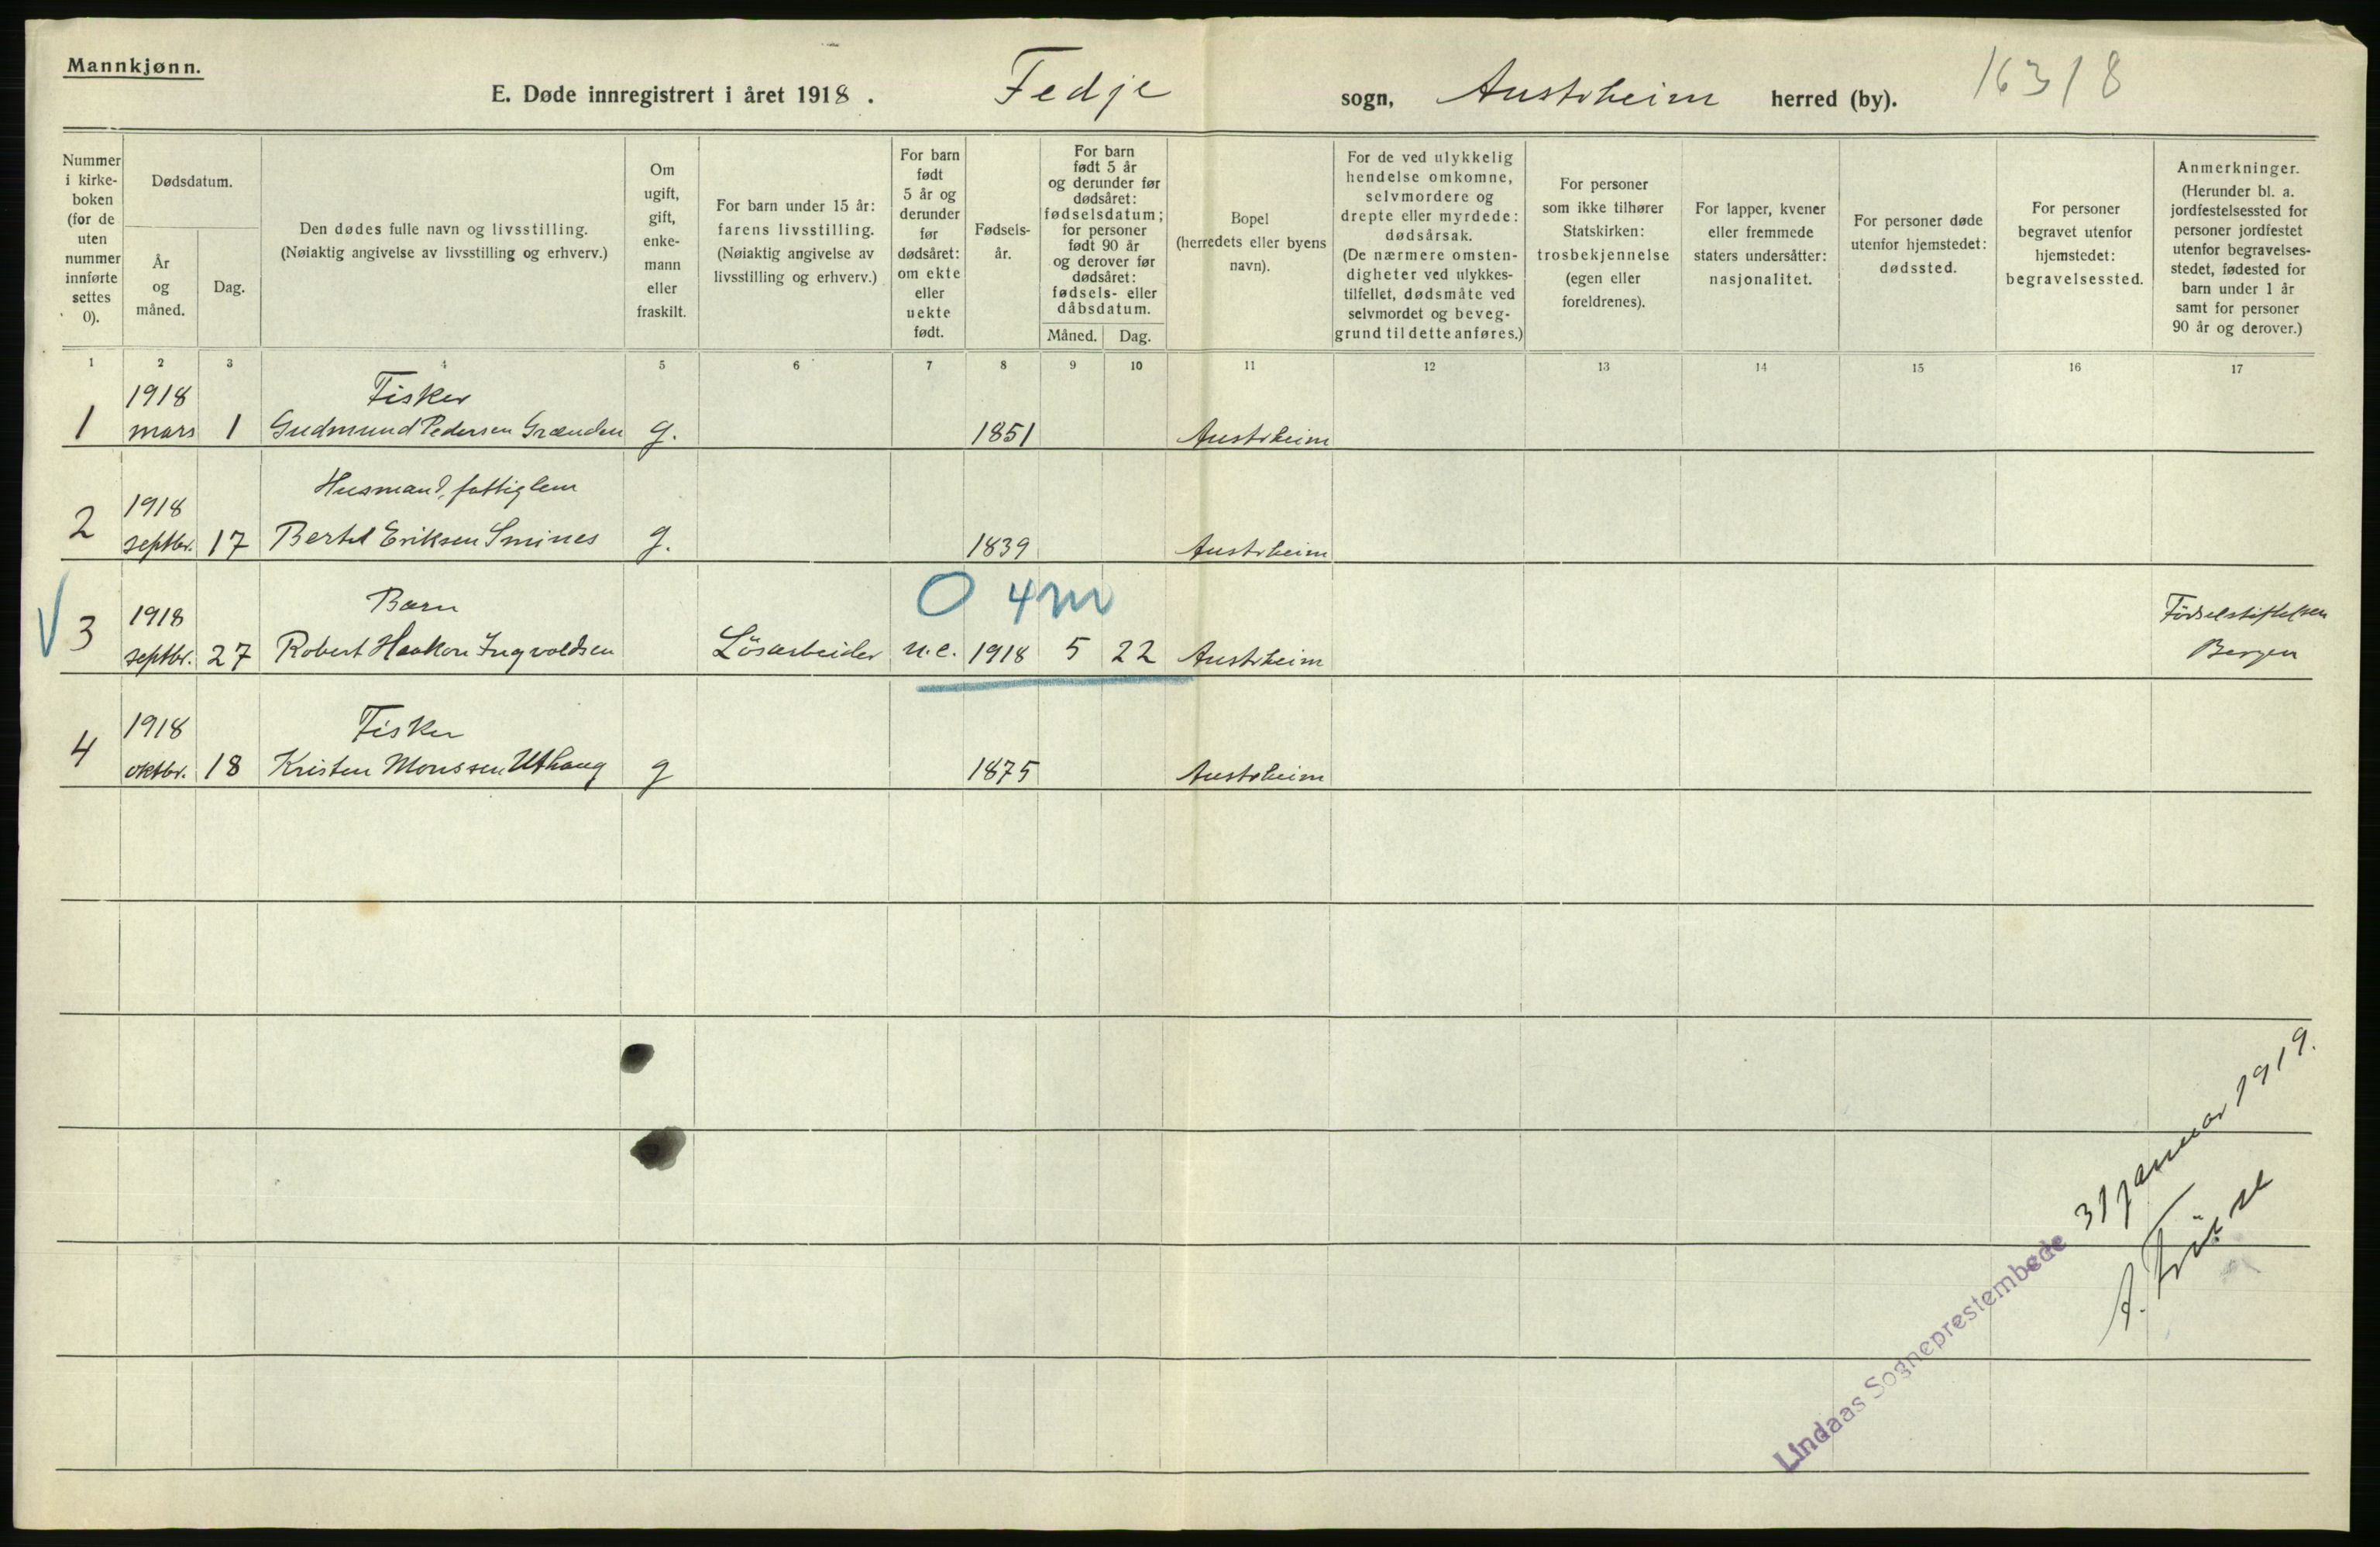 Mannkjønn.
E. Døde innregistrert i året 1918. Fedje sogn, Austrheim herred (by). 16318
Nummer i kirke- boken (for de uten nummer innførte settes 0).
Dødsdatum.
År og måned.
Dag.
Den dødes fulle navn og livsstilling.
(Nøiaktig angivelse av livsstilling og erhverv.)
Om ugift, gift, enke- mann eller fraskilt.
For barn under 15 år: farens livsstilling.
(Nøiaktig angivelse av livsstilling og erhverv.)
For barn født 5 år og derunder før dødsåret: om ekte eller uekte født.
Fødsels- år.
For barn født 5 år og derunder før dødsåret: fødselsdatum; for personer født 90 år og derover før dødsåret: fødsels- eller dåbsdatum.
Måned. Dag.
Bopel (herredets eller byens navn).
For de ved ulykkelig hendelse omkomne, selvmordere og drepte eller myrdede: dødsårsak.
(De nærmere omsten- digheter ved ulykkes- tilfellet, dødsmåte ved selvmordet og beveg- grund til dette anføres.)
For personer som ikke tilhører Statskirken: trosbekjennelse (egen eller foreldrenes).
For lapper, kvener eller fremmede staters undersåtter: nasjonalitet.
For personer døde utenfor hjemstedet: dødssted.
For personer begravet utenfor hjemstedet: begravelsessted.
Anmerkninger.
(Herunder bl. a. jordfestelsessted for personer jordfestet utenfor begravelses- stedet, fødested for barn under 1 år samt for personer 90 år og derover.)
1 2 3 4 5 6 7 8 9 10 11 12 13 14 15 16 17
1918 Fisker
1 mars 1 Gudmund Pedersen Grænden g. 1851 Austrheim
Husmand, fattiglem
1918
2 septbr. 17 Bertel Eriksen Smines g. 1839 Austrheim
O 4 m
1918 Barn Födselsstiftelsen
3 septbr. 27 Robert Haakon Ingvoldsen Lösarbeider u.e. 1918 5 22 Austrheim Bergen
1918 Fisker
4 oktbr. 18 Kristen Monssen Uthaug g 1875 Austrheim
Lindaas Sogneprestembede 31 januar 1919.